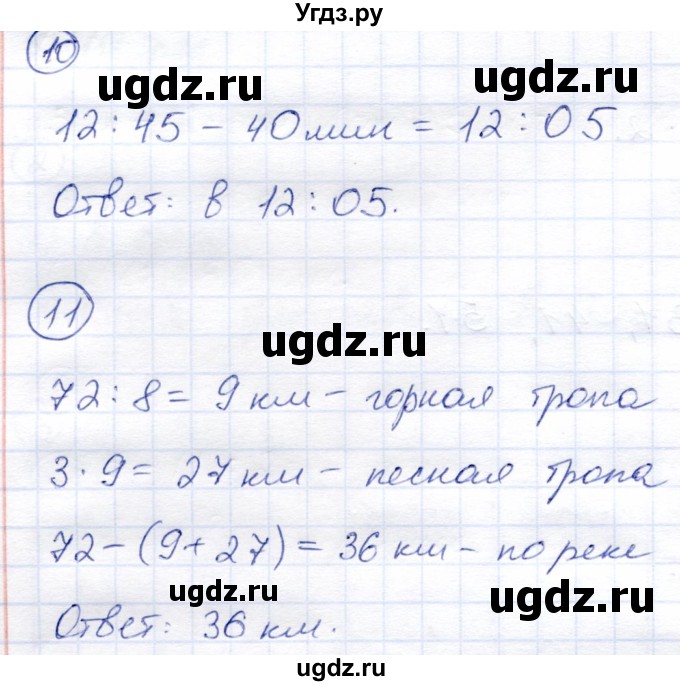 Угдз.ру
10
ugdz.ru ugdz.ru
12:45 - 40 мин = 12:05
Ответ: в 12:05.
ugdz.ru
11
ugdz.ru
72:8= 9 км - горная тропа
3·9= 27 км - лесная тропа
72-(9+27)= 36 км - по реке
ugdz.ru ugdz.ru
Ответ: 36 км.
ugdz.ru